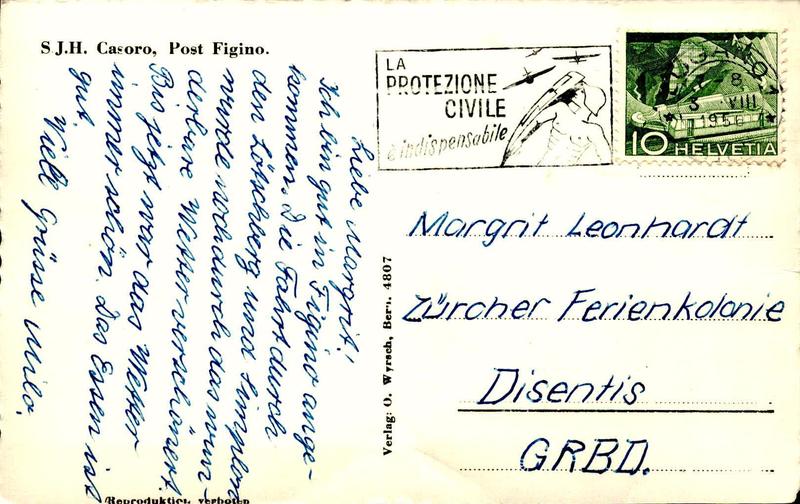 S J.H. Casoro, Post Figino.
Liebe Margrit!
Ich bin gut in Figino ange-
kommen. Die Fahrt durch
den Lötschberg und Simplon
wurde noch durch das wun-
derbare Wetter verschönert.
Bis jetzt war das Wetter
immer schön. Das Essen ist
gut.
Viele Grüsse Milo.
Reproduktion verboten
Verlag: O. Wyrsch, Bern. 4807
LA
PROTEZIONE
CIVILE
è indispensabile
LUGANO 1
3 VIII
1956
10 HELVETIA
Margrit Leonhardt
Zürcher Ferienkolonie
Disentis
GRBD.